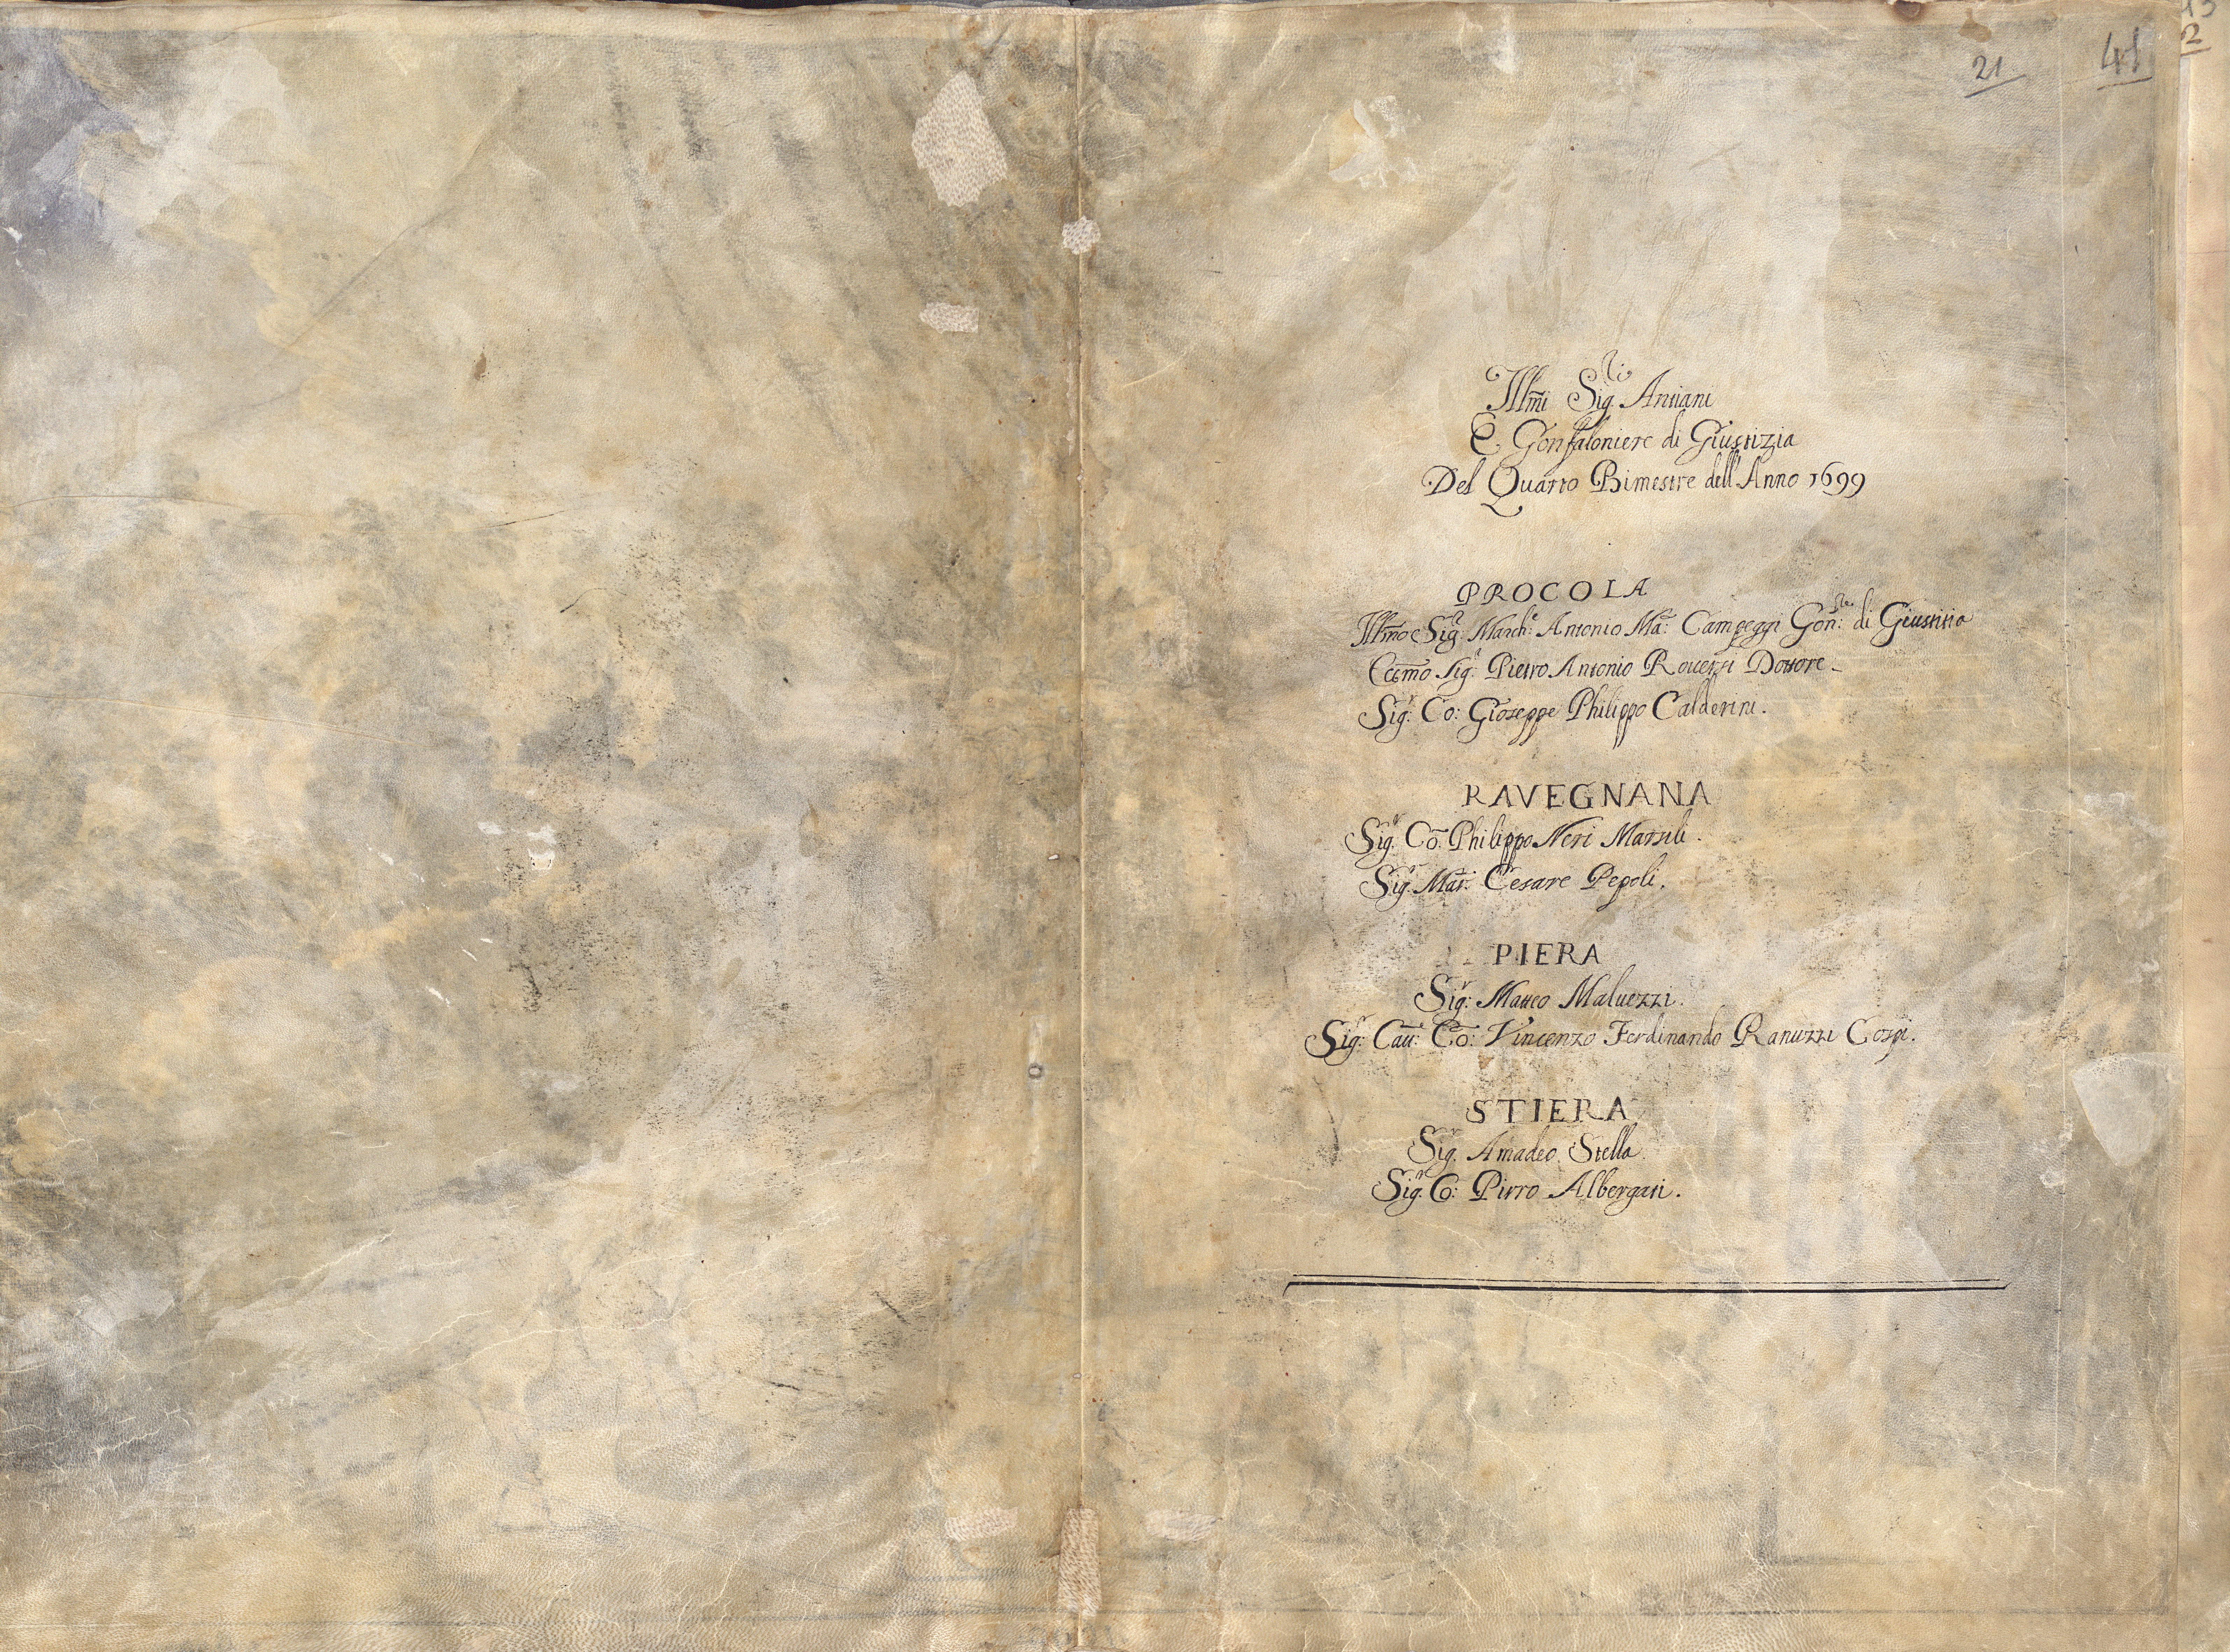 21
41
2
Illmi Sig.ri Antiani
E Gonfaloniere di Giustizia
Del Quarto Bimestre dell'Anno 1699
PROCOLA
Illmo Sig.re March: Antonio Ma: Campeggi Gon:re di Giustitia
Eccmo Sig.r Pietro Antonio Rouezzi Dottore
Sig.r Co: Gioseppe Philippo Calderini.
RAVEGNANA
Sig.r Co: Philippo Neri Marsili.
Sig.r Mar: Cesare Pepoli.
PIERA
Sig.r Matteo Maluezzi.
Sig.r Cau: Co: Vincenzo Ferdinando Ranuzzi Cospi.
STIERA
Sig.r Amadeo Stella.
Sig.r Co: Pirro Albergati.